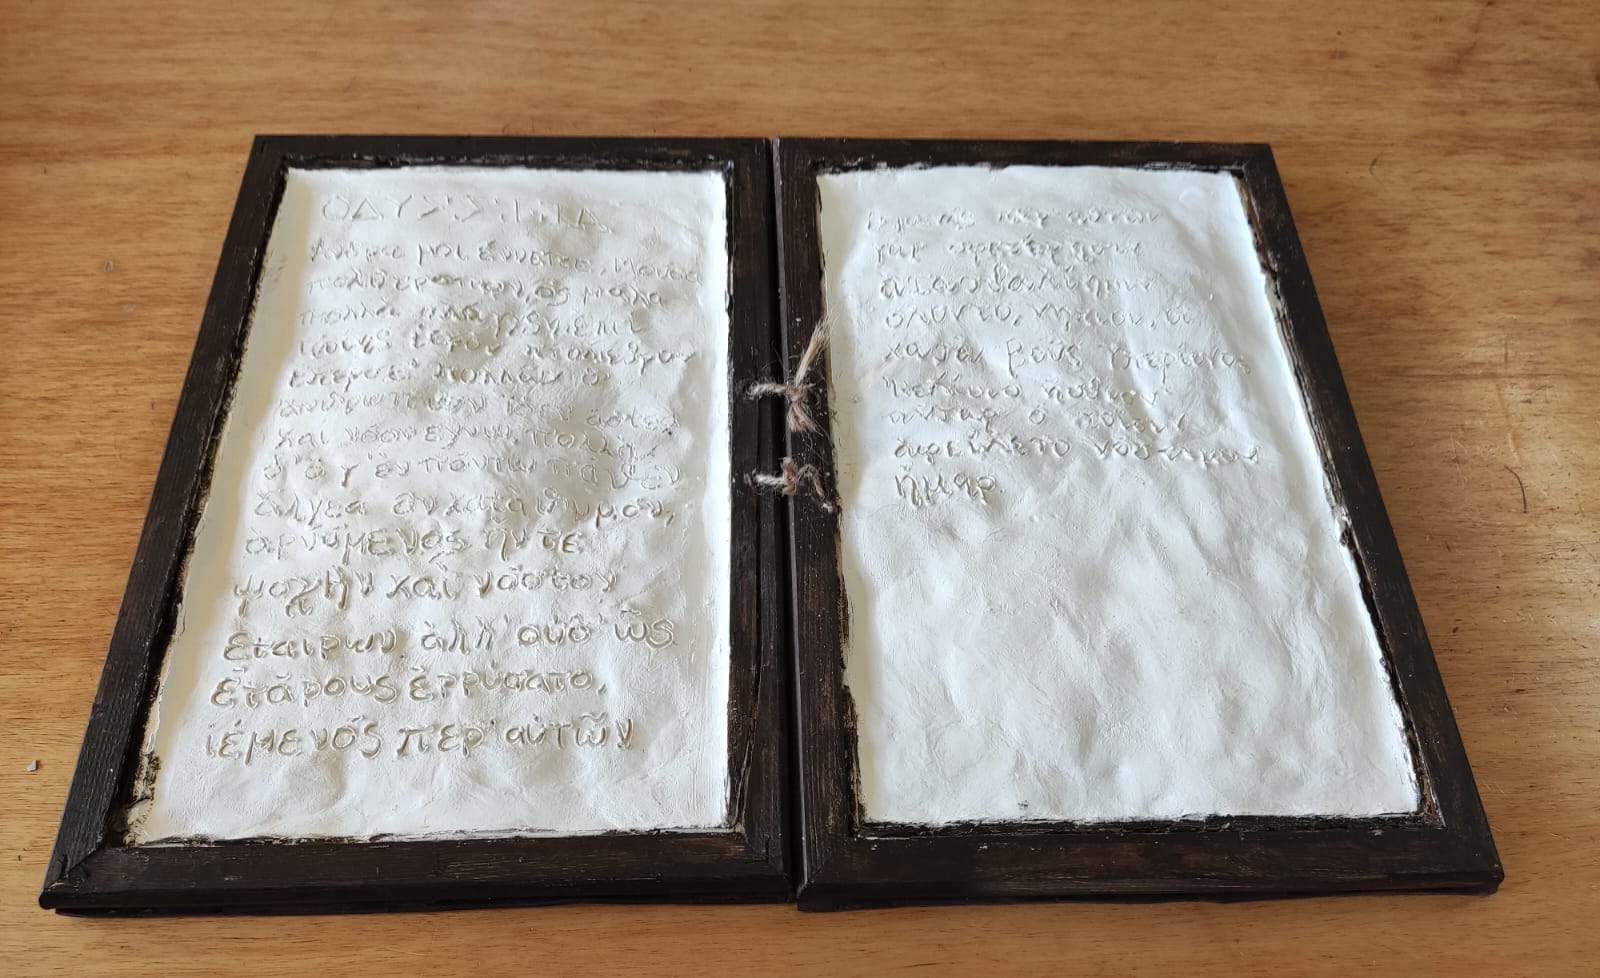 ΟΔΥΣΣΕΙΑ
Ανδρα μοι έννεπε, Μουσα
πολύτροπον, ός μάλα
πολλα πλάγχθη, επει
ιερον πτολιεθρον
επερσε πολλων δ
ανθρωπων ιδεν αστεα
και νόον εγνω, πολλα
ὁ ὅ γ' ἐν πόντω παθεν
ἄλγεα ὃν κατα θυμον,
αρνύμενος ἥν τε
ψυχὴν καὶ νόστον
ἑταιρων. ἀλλ' οὐδ' ὣς
ἑτάρους ἐρρύσατο,
ἱέμενός περ· αὐτῶν
αὐτῶν
γαρ
ατασθαλίησιν
ολοντο, νηπιοι, οἱ
κατὰ βοῦς Ὑπερίονος
Ἠελίοιο ἤσθιον·
αὐτὰρ ὁ τοῖσιν
ἀφείλετο νόστιμον
ἦμαρ.